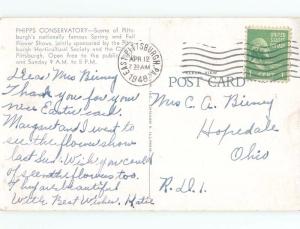 PHIPPS CONSERVATORY—Scene of Pitts-
burgh's nationally famous Spring and Fall
Flower Shows, jointly sponsored by the
burgh Horticultural Society and the
Pittsburgh. Open Area to the public
and Sunday 9 A.M. to 5 P.M.
EAST PITTSBURGH, PA.
APR 12
7 30 AM
1948
POST CARD
Dear Mrs Bieney
Thank you for your
new Easter card.
Margaret and I went to
see the flower show
last Sun. Wish you could
of seen the flowers too.
They are beautiful
With Best Wishes, Katie
Mrs C. A. Bieney
Hopedale
Ohio
R.D.1.